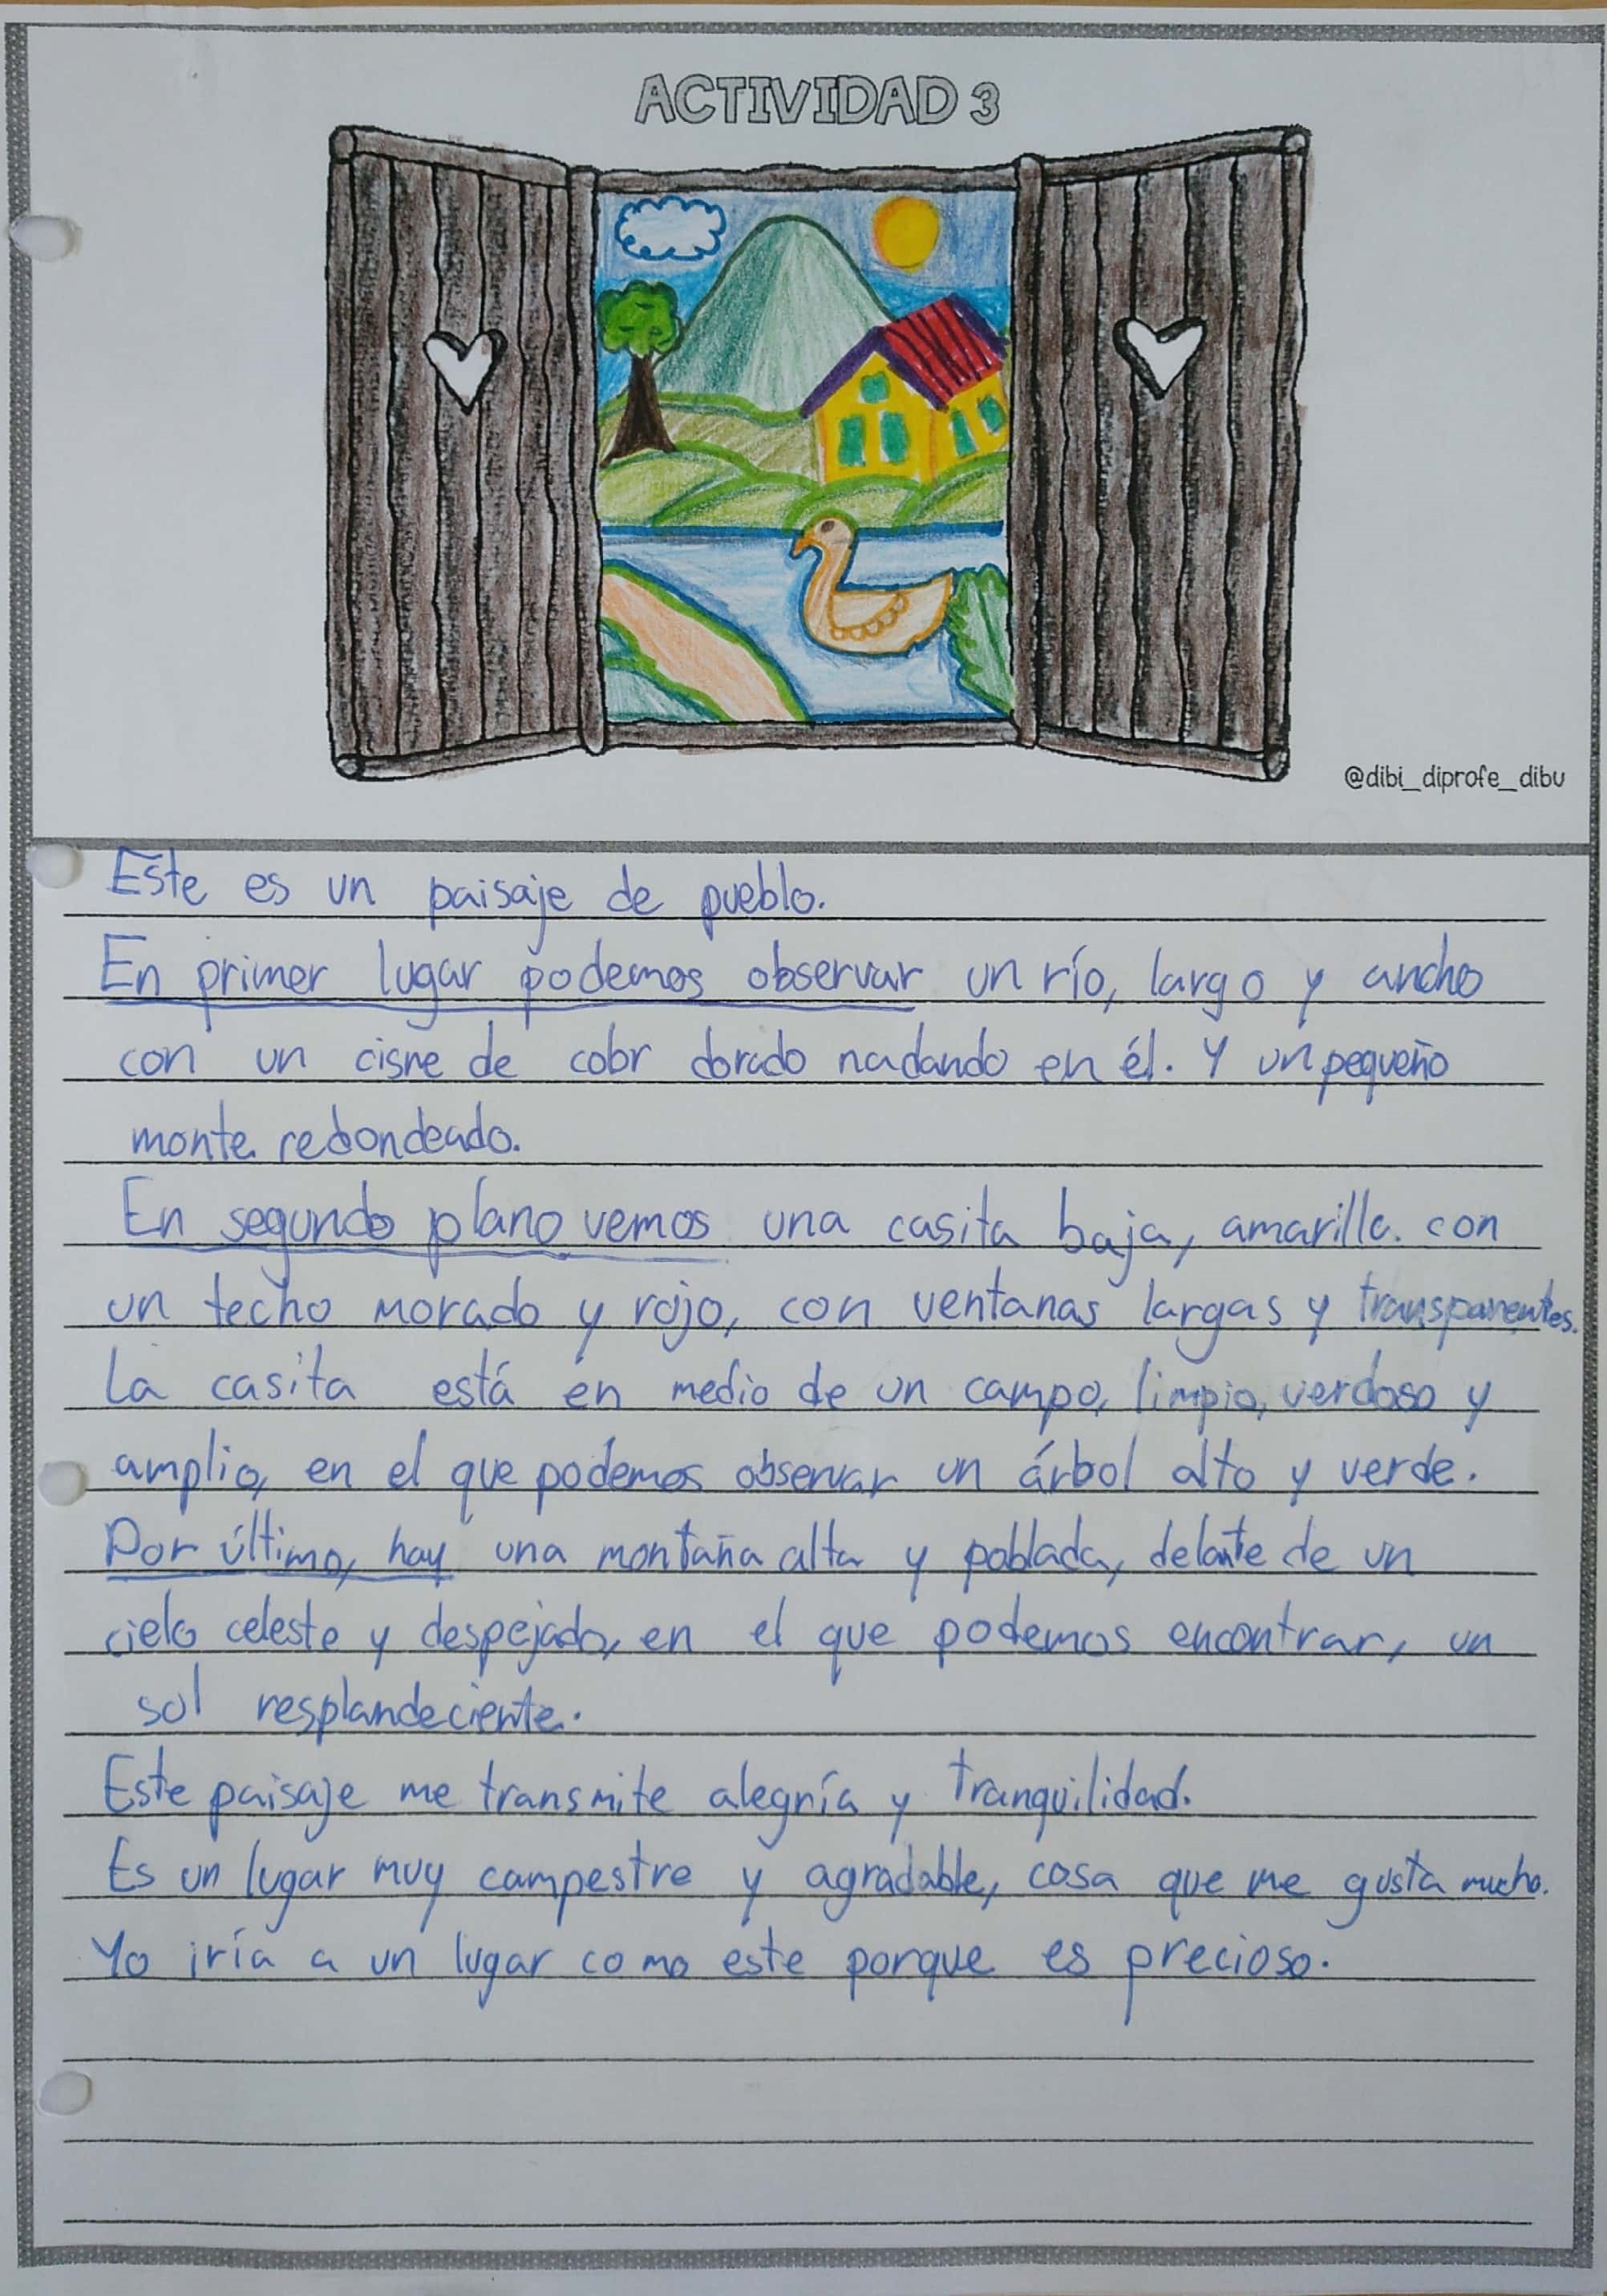 ACTIVIDAD 3
@dibi_diprofe_dibu
Este es un paisaje de pueblo.
En primer lugar podemos observar un río, largo y ancho
con un cisne de cobr dorado nadando en él. Y un pequeño
monte redondeado.
En segundo plano vemos una casita baja, amarilla con
un techo morado y rojo, con ventanas largas y transparentes.
La casita está en medio de un campo, limpio, verdoso y
amplio, en el que podemos observar un árbol alto y verde.
Por último, hay una montaña alta y poblada, delante de un
cielo celeste y despejado, en el que podemos encontrar, un
sol resplandeciente.
Este paisaje me transmite alegría y tranquilidad.
Es un lugar muy campestre y agradable, cosa que me gusta mucho.
Yo iría a un lugar como este porque es precioso.